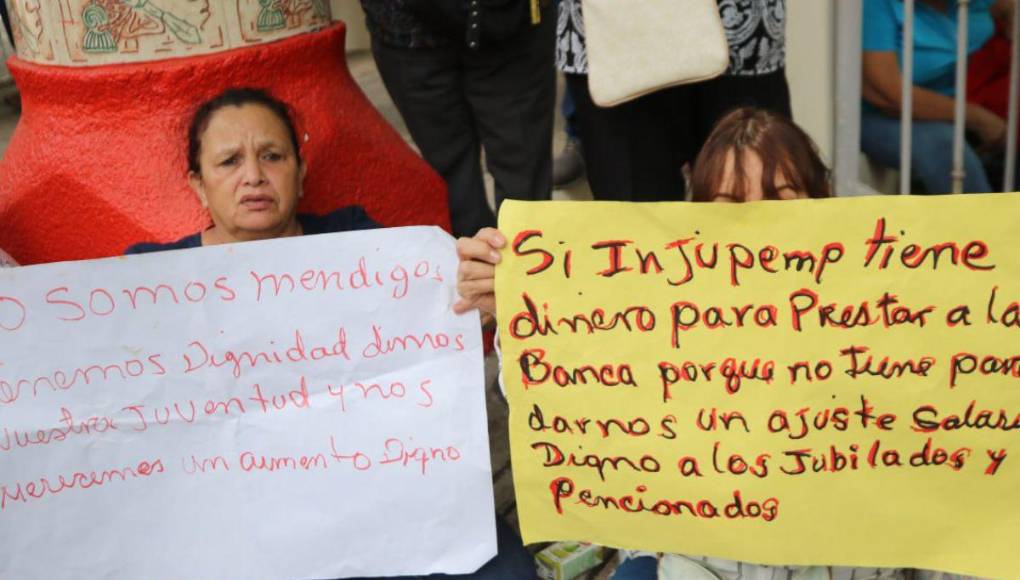 O Somos mendigos
enemos Dignidad dimos
uestra Juventud y nos
merecemos un aumento Digno
Si Injupemp tiene
dinero para Prestar a la
Banca porque no tiene para
darnos un ajuste Salari
Digno a los Jubilados y
Pencionados